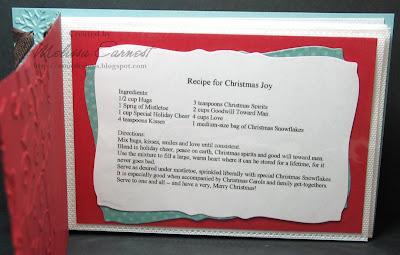 Created by
Melissa Earnest
Recipe for Christmas Joy
Ingredients:
1/2 cup Hugs 3 teaspoons Christmas Spirits
1 Sprig of Mistletoe 2 cups Goodwill Toward Man
1 cup Special Holiday Cheer 4 cups Love
4 teaspoons Kisses 1 medium-size bag of Christmas Snowflakes
Directions:
Mix hugs, kisses, smiles and love until consistent.
Blend in holiday cheer, peace on earth, Christmas spirits and good will toward men.
Use the mixture to fill a large, warm heart where it can be stored for a lifetime, for it
never goes bad.
Serve as desired under mistletoe, sprinkled liberally with special Christmas Snowflakes
It is especially good when accompanied by Christmas Carols and family get-togethers.
Serve to one and all -- and have a very, Merry Christmas!